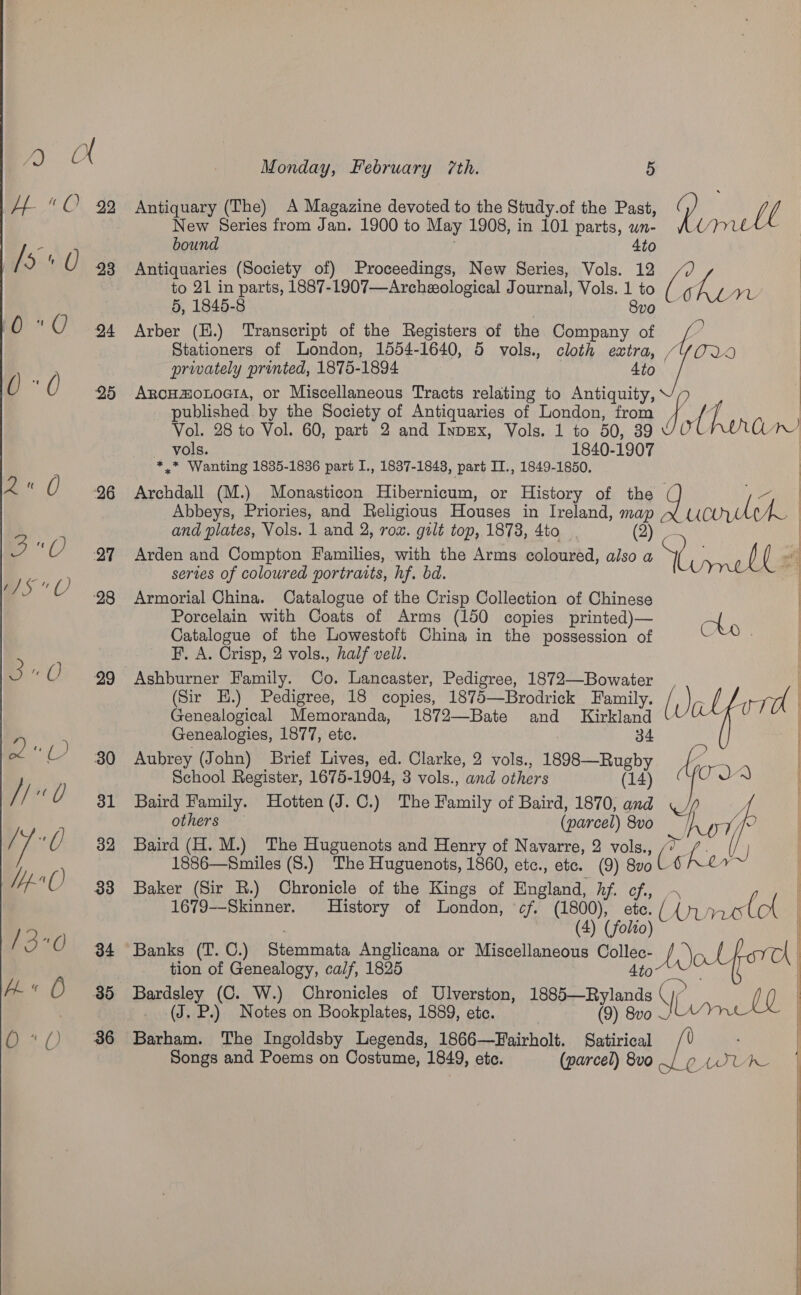 Monday, February 7th. 5
4 " 0 22 Antiquary (The) A Magazine devoted to the Study.of the Past,
New Series from Jan. 1900 to May 1908, in 101 parts, un- Rimell
bound 4to
15 " 0 23 Antiquaries (Society of) Proceedings, New Series, Vols. 12
to 21 in parts, 1887-1907—Archæological Journal, Vols. 1 to Cohen
5, 1845-8 8vo
0 " 0 24 Arber (E.) Transcript of the Registers of the Company of
Stationers of London, 1554-1640, 5 vols., cloth extra,
privately printed, 1875-1894 4to
0 " 0 25 Archæologia, or Miscellaneous Tracts relating to Antiquity,
published by the Society of Antiquaries of London, from
Vol. 28 to Vol. 60, part 2 and Index, Vols. 1 to 50, 39 Sotheran
vols. 1840-1907
*.* Wanting 1835-1836 part I., 1837-1843, part II., 1849-1850.
2 " 0 26 Archdall (M.) Monasticon Hibernicum, or History of the
Abbeys, Priories, and Religious Houses in Ireland, map
and plates, Vols. 1 and 2, rox. gilt top, 1873, 4to (2)
3 " 0 27 Arden and Compton Families, with the Arms coloured, also a Rimell
series of coloured portraits, hf. bd.
15 " 0 28 Armorial China. Catalogue of the Crisp Collection of Chinese
Porcelain with Coats of Arms (150 copies printed)—
Catalogue of the Lowestoft China in the possession of do.
F. A. Crisp, 2 vols., half vell.
3 " 0 29 Ashburner Family. Co. Lancaster, Pedigree, 1872—Bowater
(Sir E.) Pedigree, 18 copies, 1875—Brodrick Family. Walford
Genealogical Memoranda, 1872—Bate and Kirkland
Genealogies, 1877, etc. 34
2 " 0 30 Aubrey (John) Brief Lives, ed. Clarke, 2 vols., 1898—Rugby
School Register, 1675-1904, 3 vols., and others (14)
11 " 0 31 Baird Family. Hotten (J. C.) The Family of Baird, 1870, and
others (parcel) 8vo Thorp
17 " 0 32 Baird (H. M.) The Huguenots and Henry of Navarre, 2 vols.,
1886—Smiles (S.) The Huguenots, 1860, etc., etc. (9) 8vo Cohen
14 " 0 33 Baker (Sir R.) Chronicle of the Kings of England, hf. cf.,
1679—Skinner. History of London, cf. (1800), etc. Arnold
(4) (folio)
13 " 0 34 Banks (T. C.) Stemmata Anglicana or Miscellaneous Collec- Walford
tion of Genealogy, calf, 1825 4to
4 " 0 35 Bardsley (C. W.) Chronicles of Ulverston, 1885—Rylands
(J. P.) Notes on Bookplates, 1889, etc. (9) 8vo Rimell
0 " 0 36 Barham. The Ingoldsby Legends, 1866—Fairholt. Satirical
Songs and Poems on Costume, 1849, etc. (parcel) 8vo